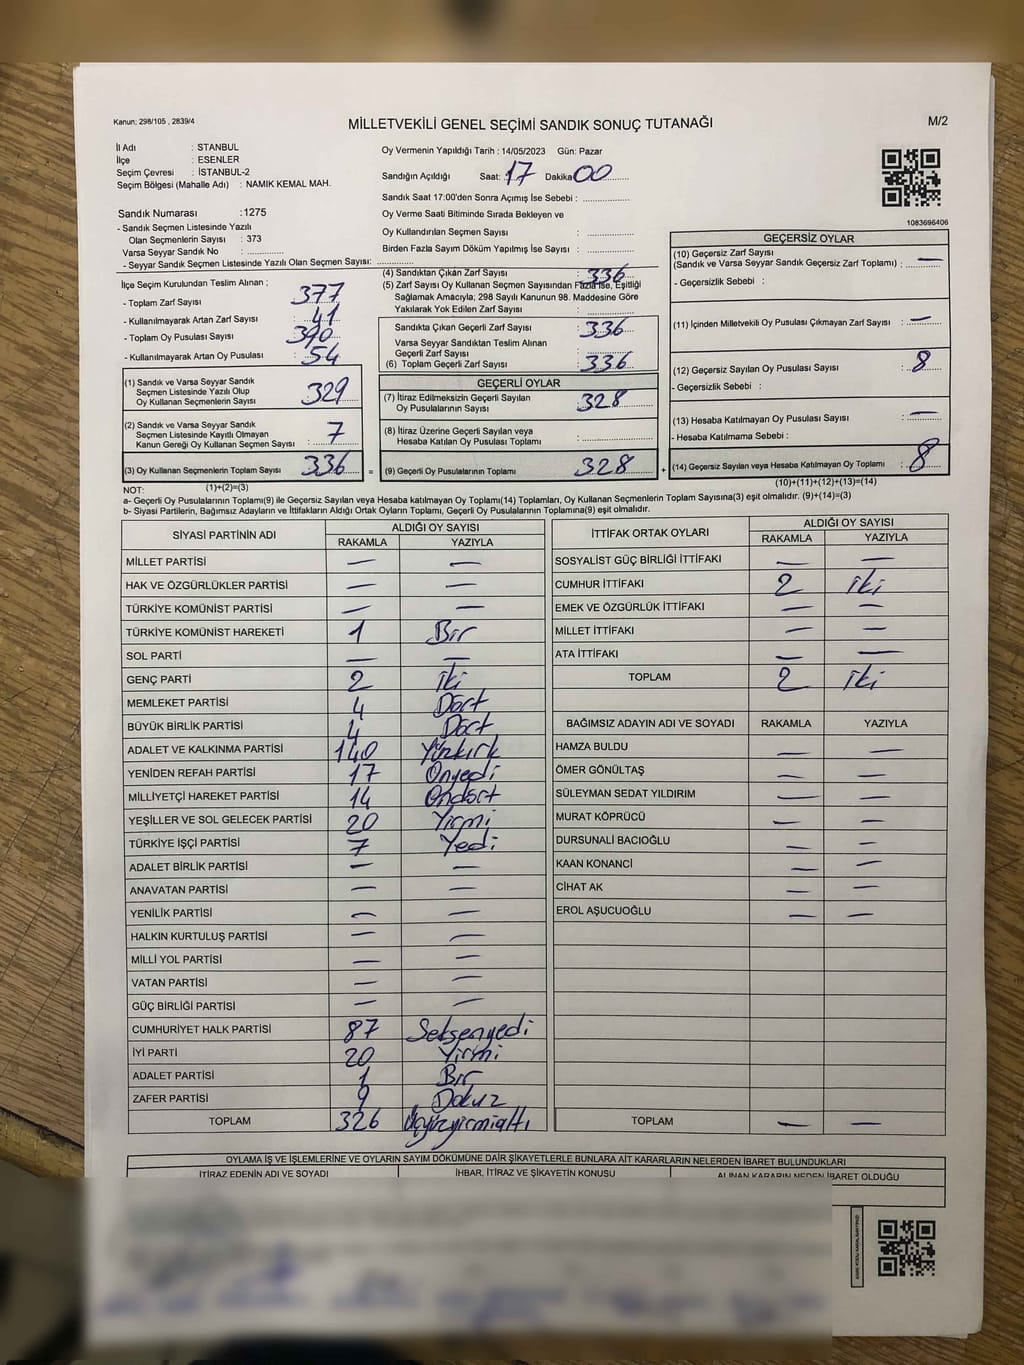 Kanun: 298/105 , 2839/4
MİLLETVEKİLİ GENEL SEÇİMİ SANDIK SONUÇ TUTANAĞI
M/2
İl Adı : STANBUL
İlçe : ESENLER
Seçim Çevresi : İSTANBUL-2
Seçim Bölgesi (Mahalle Adı) : NAMIK KEMAL MAH.
Oy Vermenin Yapıldığı Tarih : 14/05/2023 Gün: Pazar
Sandığın Açıldığı Saat: 17 Dakika 00
Sandık Saat 17:00'den Sonra Açımış İse Sebebi :
Oy Verme Saati Bitiminde Sırada Bekleyen ve
Oy Kullandırılan Seçmen Sayısı :
Birden Fazla Sayım Döküm Yapılmış İse Sayısı :
1083696406
Sandık Numarası : 1275
- Sandık Seçmen Listesinde Yazılı
Olan Seçmenlerin Sayısı : 373
Varsa Seyyar Sandık No :
- Seyyar Sandık Seçmen Listesinde Yazılı Olan Seçmen Sayısı:
İlçe Seçim Kurulundan Teslim Alınan ;
- Toplam Zarf Sayısı : 377
- Kullanılmayarak Artan Zarf Sayısı : 41
- Toplam Oy Pusulası Sayısı : 390
- Kullanılmayarak Artan Oy Pusulası : 54
(1) Sandık ve Varsa Seyyar Sandık
Seçmen Listesinde Yazılı Olup
Oy Kullanan Seçmenlerin Sayısı : 329
(2) Sandık ve Varsa Seyyar Sandık
Seçmen Listesinde Kayıtlı Olmayan
Kanun Gereği Oy Kullanan Seçmen Sayısı : 7
(3) Oy Kullanan Seçmenlerin Toplam Sayısı : 336 =
(1)+(2)=(3)
(4) Sandıktan Çıkan Zarf Sayısı : 336
(5) Zarf Sayısı Oy Kullanan Seçmen Sayısından Fazla İse, Eşitliği
Sağlamak Amacıyla; 298 Sayılı Kanunun 98. Maddesine Göre
Yakılarak Yok Edilen Zarf Sayısı :
Sandıkta Çıkan Geçerli Zarf Sayısı : 336
Varsa Seyyar Sandıktan Teslim Alınan
Geçerli Zarf Sayısı :
(6) Toplam Geçerli Zarf Sayısı : 336
GEÇERLİ OYLAR
(7) İtiraz Edilmeksizin Geçerli Sayılan
Oy Pusulalarının Sayısı : 328
(8) İtiraz Üzerine Geçerli Sayılan veya
Hesaba Katılan Oy Pusulası Toplamı :
(9) Geçerli Oy Pusulalarının Toplamı : 328 +
GEÇERSİZ OYLAR
(10) Geçersiz Zarf Sayısı
(Sandık ve Varsa Seyyar Sandık Geçersiz Zarf Toplamı) : —
- Geçersizlik Sebebi :
(11) İçinden Milletvekili Oy Pusulası Çıkmayan Zarf Sayısı : —
(12) Geçersiz Sayılan Oy Pusulası Sayısı : 8
- Geçersizlik Sebebi :
(13) Hesaba Katılmayan Oy Pusulası Sayısı : —
- Hesaba Katılmama Sebebi :
(14) Geçersiz Sayılan veya Hesaba Katılmayan Oy Toplamı : 8
(10)+(11)+(12)+(13)=(14)
NOT:
a- Geçerli Oy Pusulalarının Toplamı(9) ile Geçersiz Sayılan veya Hesaba katılmayan Oy Toplamı(14) Toplamları, Oy Kullanan Seçmenlerin Toplam Sayısına(3) eşit olmalıdır. (9)+(14)=(3)
b- Siyasi Partilerin, Bağımsız Adayların ve İttifakların Aldığı Ortak Oyların Toplamı, Geçerli Oy Pusulalarının Toplamına(9) eşit olmalıdır.
SİYASİ PARTİNİN ADI ALDIĞI OY SAYISI
RAKAMLA YAZIYLA
MİLLET PARTİSİ — —
HAK VE ÖZGÜRLÜKLER PARTİSİ — —
TÜRKİYE KOMÜNİST PARTİSİ — —
TÜRKİYE KOMÜNİST HAREKETİ 1 Bir
SOL PARTİ — —
GENÇ PARTİ 2 İki
MEMLEKET PARTİSİ 4 Dört
BÜYÜK BİRLİK PARTİSİ 4 Dört
ADALET VE KALKINMA PARTİSİ 140 Yüzkırk
YENİDEN REFAH PARTİSİ 17 Onyedi
MİLLİYETÇİ HAREKET PARTİSİ 14 Ondört
YEŞİLLER VE SOL GELECEK PARTİSİ 20 Yirmi
TÜRKİYE İŞÇİ PARTİSİ 7 Yedi
ADALET BİRLİK PARTİSİ — —
ANAVATAN PARTİSİ — —
YENİLİK PARTİSİ — —
HALKIN KURTULUŞ PARTİSİ — —
MİLLİ YOL PARTİSİ — —
VATAN PARTİSİ — —
GÜÇ BİRLİĞİ PARTİSİ — —
CUMHURİYET HALK PARTİSİ 87 Seksenyedi
İYİ PARTİ 20 Yirmi
ADALET PARTİSİ 1 Bir
ZAFER PARTİSİ 9 Dokuz
TOPLAM 326 Üçyüzyirmialtı
İTTİFAK ORTAK OYLARI ALDIĞI OY SAYISI
RAKAMLA YAZIYLA
SOSYALİST GÜÇ BİRLİĞİ İTTİFAKI — —
CUMHUR İTTİFAKI 2 İki
EMEK VE ÖZGÜRLÜK İTTİFAKI — —
MİLLET İTTİFAKI — —
ATA İTTİFAKI — —
TOPLAM 2 İki
BAĞIMSIZ ADAYIN ADI VE SOYADI RAKAMLA YAZIYLA
HAMZA BULDU — —
ÖMER GÖNÜLTAŞ — —
SÜLEYMAN SEDAT YILDIRIM — —
MURAT KÖPRÜCÜ — —
DURSUNALİ BACIOĞLU — —
KAAN KONANCİ — —
CİHAT AK — —
EROL AŞUCUOĞLU — —
TOPLAM — —
OYLAMA İŞ VE İŞLEMLERİNE VE OYLARIN SAYIM DÖKÜMÜNE DAİR ŞİKAYETLERLE BUNLARA AİT KARARLARIN NELERDEN İBARET BULUNDUKLARI
İTİRAZ EDENİN ADI VE SOYADI İHBAR, İTİRAZ VE ŞİKAYETİN KONUSU ALINAN KARARIN NEDEN İBARET OLDUĞU